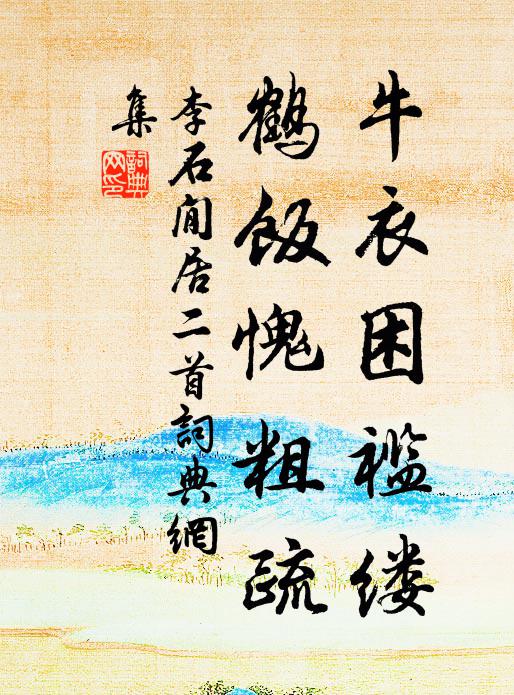 牛衣困褴缕
鹤饭愧粗疏
李石闲居二首词典網
集
詞典網印